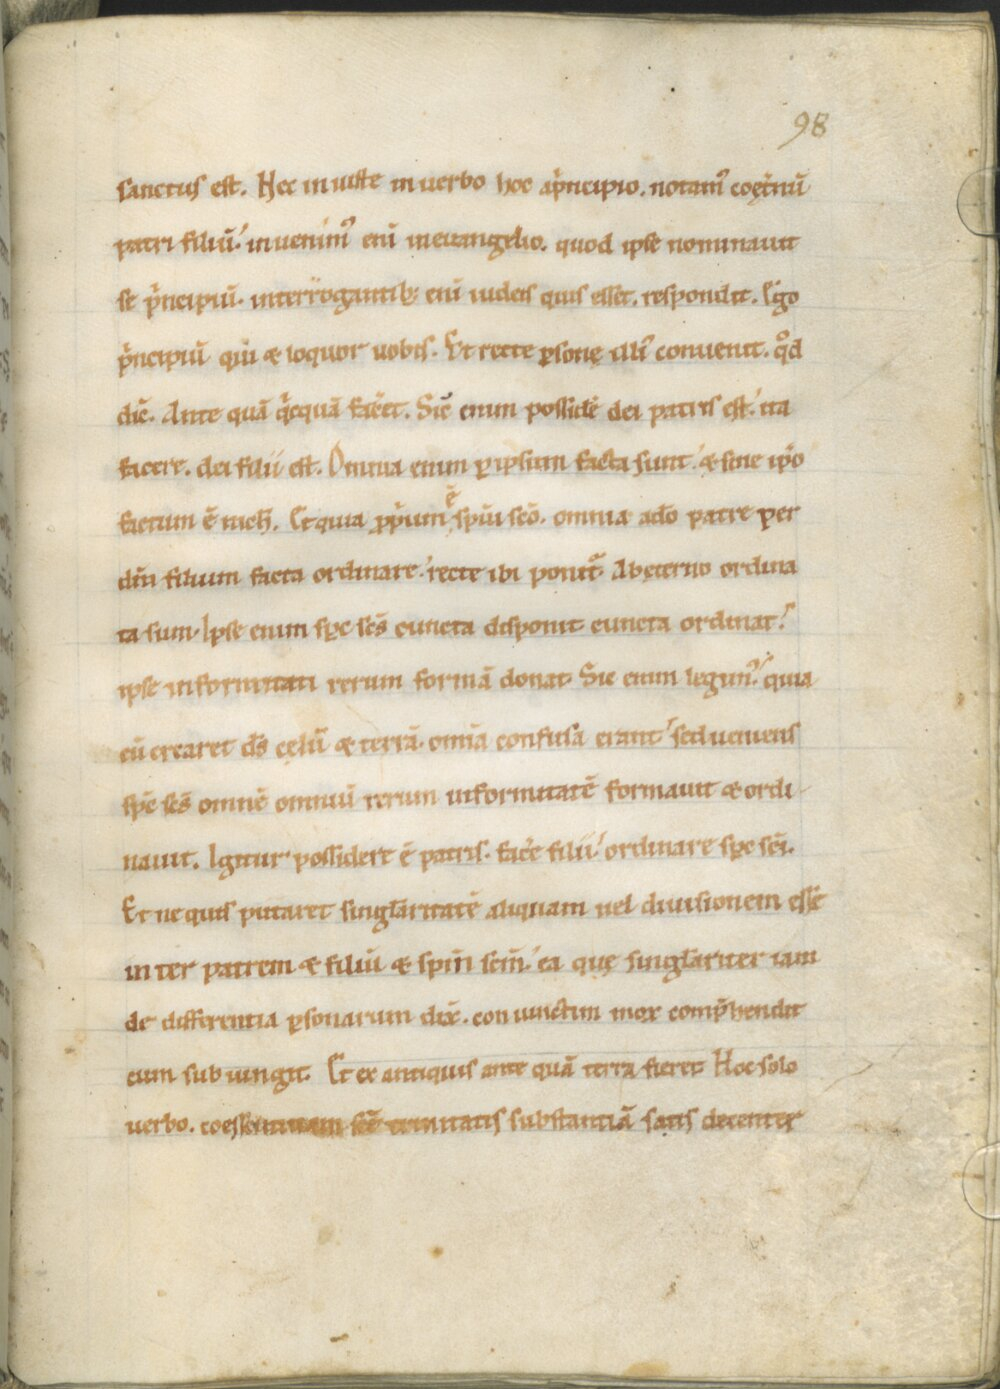 98
sanctus est. Hec in iuste in uerbo hoc ap̃ncipio. notam᾽ coęt̃nũ
patri filiũ. inuenim᾽ eni᷒ in euangelio. quod ipse nominauit
se p̃ncipiũ. interrogantib; eni᷒ iudeis quis esset. respondit. Ego
p̃ncipiũ qui & loquor uobis. Et recte ꝑsonę illi conuenit. qd̊
dic̃. Ante quã q̃cquã fac̃et. Sic̃ enim possidẽ dei patris est. ita
facere. dei filii est. Omnia enim ꝑ ipsum facta sunt & sine ip̃o
factum ẽ nich̃. Et quia ꝓp̃ium ẽ sp̃u sc̃o. omnia a dõ patre per
dm̃ filium facta ordinare. recte ibi ponit̃. Ab ęterno ordina
ta sum. Ipse enim sp̃c sc̃s cuncta disponit cuncta ordinat.
ipse informitati rerum formã donat. Sic enim legim᾽. quia
cũ crearet ds̃ cęlũ & terrã. omĩa confusa erant sed ueniens
sp̃c sc̃s omnẽ omniũ rerum informitatẽ formauit & ordi-
nauit. Igitur possidere ẽ patris. fac̃e filii. ordinare sp̃c sc̃i.
Et ne quis putaret singl̃aritatẽ aliquam uel diuisionem esse
inter patrem & filiũ & spm̃ scm̃. ea quę singl̃ariter iam
de differentia ꝑsonarum dix̃. coniunctim mox comp̃hendit
cum subiungit. Et ex antiquis ante quã terra fieret. Hoc solo
uerbo. sc̃ẽ trinitatis substantiã satis decenter